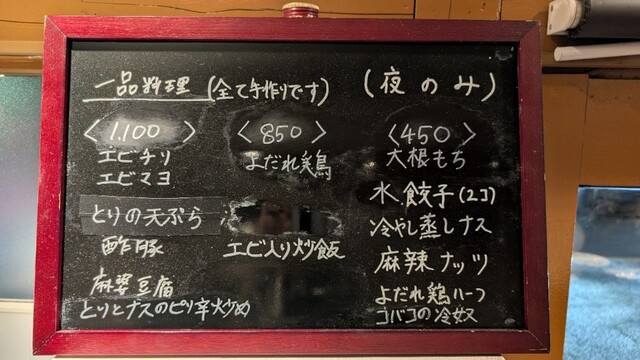 一品料理 (全て手作りです) (夜のみ)
〈1.100〉
エビチリ
エビマヨ
とりの天ぷら
酢豚
麻婆豆腐
とりとナスのピリ辛炒め
〈850〉
よだれ鶏
エビ入り炒飯
〈450〉
大根もち
水餃子(2コ)
冷やし蒸しナス
麻辣ナッツ
よだれ鶏ハーフ
コバコの冷奴